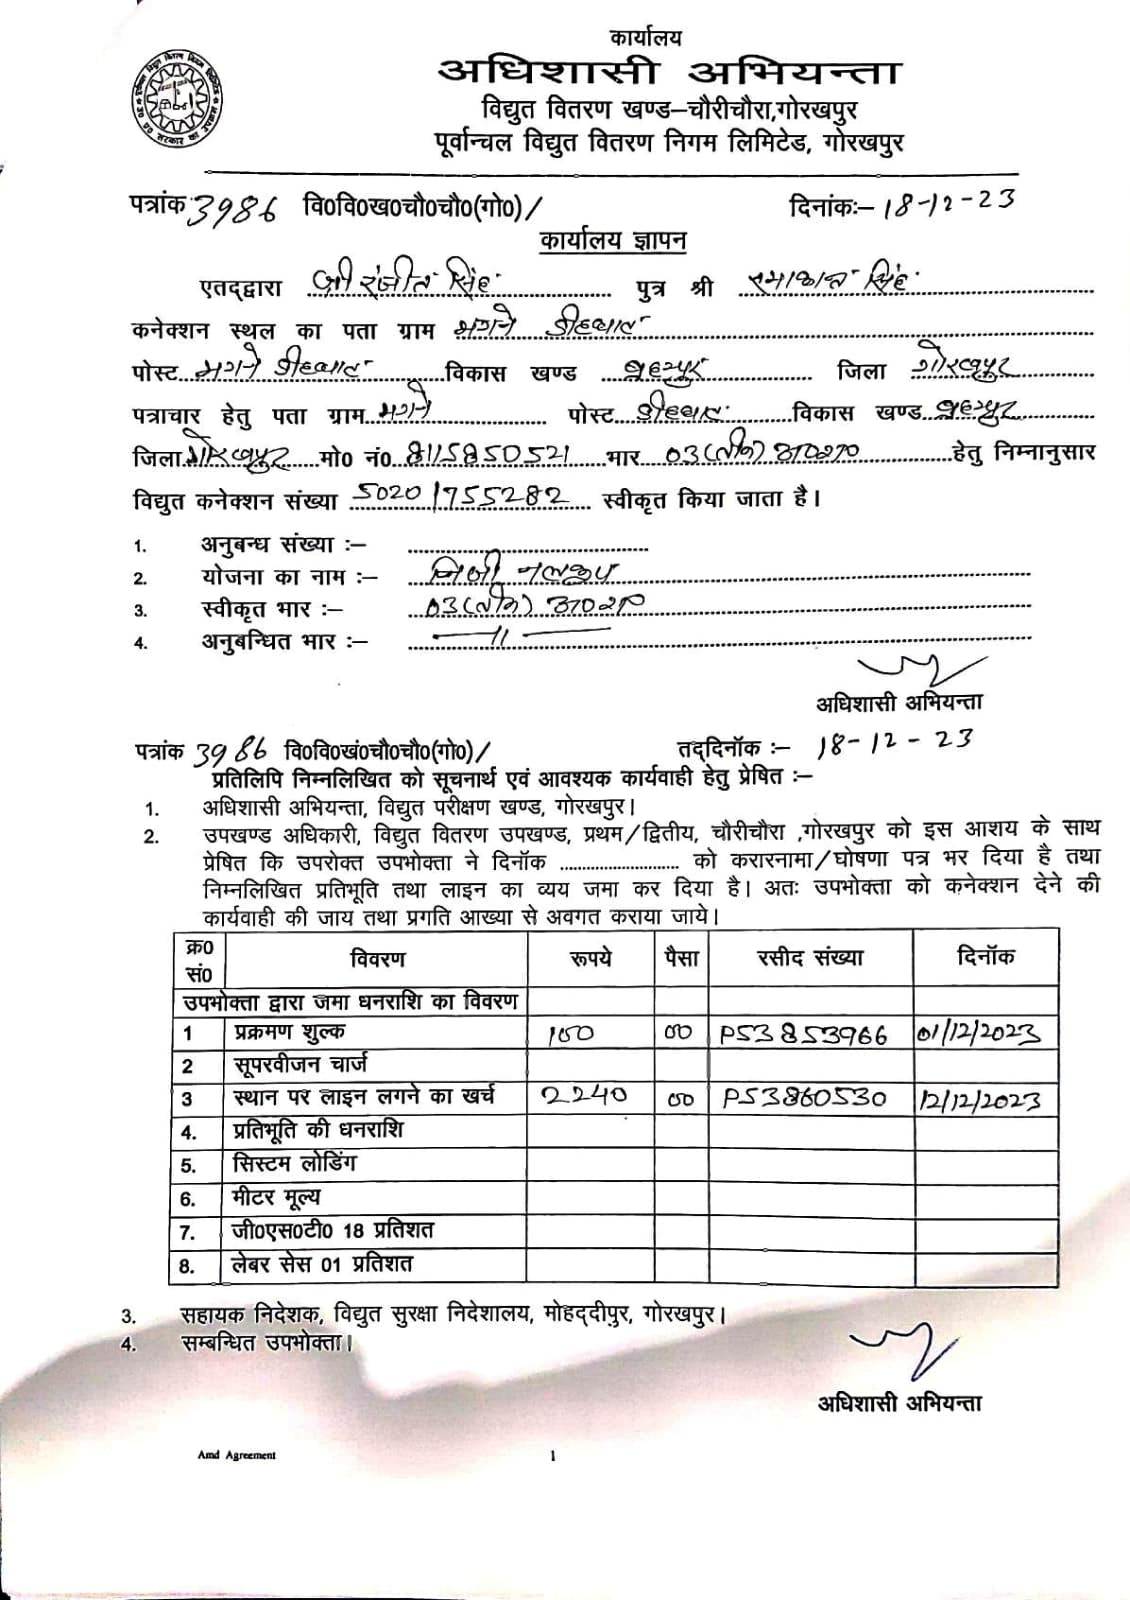 कार्यालय
अधिशासी अभियन्ता
विद्युत वितरण खण्ड–चौरीचौरा,गोरखपुर
पूर्वान्चल विद्युत वितरण निगम लिमिटेड, गोरखपुर
पत्रांक 3986 वि0वि0ख0चौ0चौ0(गो0)/ दिनांकः– 18-12-23
कार्यालय ज्ञापन
एतद्द्वारा श्री रंजीत सिंह पुत्र श्री रमाकान्त सिंह
कनेक्शन स्थल का पता ग्राम
पोस्ट विकास खण्ड ब्रह्मपुर जिला गोरखपुर
पत्राचार हेतु पता ग्राम पोस्ट विकास खण्ड ब्रह्मपुर
जिला गोरखपुर मो0 नं0 8115850521 भार 03(तीन) हेतु निम्नानुसार
विद्युत कनेक्शन संख्या 5020/755282 स्वीकृत किया जाता है।
1. अनुबन्ध संख्या :–
2. योजना का नाम :– निजी नलकूप
3. स्वीकृत भार :– 03(तीन)
4. अनुबन्धित भार :– —11—
अधिशासी अभियन्ता
पत्रांक 3986 वि0वि0खं0चौ0चौ0(गो0)/ तद्दिनॉक :– 18-12-23
प्रतिलिपि निम्नलिखित को सूचनार्थ एवं आवश्यक कार्यवाही हेतु प्रेषित :–
1. अधिशासी अभियन्ता, विद्युत परीक्षण खण्ड, गोरखपुर।
2. उपखण्ड अधिकारी, विद्युत वितरण उपखण्ड, प्रथम/द्वितीय, चौरीचौरा ,गोरखपुर को इस आशय के साथ
प्रेषित कि उपरोक्त उपभोक्ता ने दिनॉक .......................... को करारनामा/घोषणा पत्र भर दिया है तथा
निम्नलिखित प्रतिभूति तथा लाइन का व्यय जमा कर दिया है। अतः उपभोक्ता को कनेक्शन देने की
कार्यवाही की जाय तथा प्रगति आख्या से अवगत कराया जाये।
क्र0 सं0 विवरण रूपये पैसा रसीद संख्या दिनॉक
उपभोक्ता द्वारा जमा धनराशि का विवरण
1 प्रक्रमण शुल्क 100 00 P53853966 01/12/2023
2 सूपरवीजन चार्ज
3 स्थान पर लाइन लगने का खर्च 2240 00 P53860530 12/12/2023
4. प्रतिभूति की धनराशि
5. सिस्टम लोडिंग
6. मीटर मूल्य
7. जी0एस0टी0 18 प्रतिशत
8. लेबर सेस 01 प्रतिशत
3. सहायक निदेशक, विद्युत सुरक्षा निदेशालय, मोहद्दीपुर, गोरखपुर।
4. सम्बन्धित उपभोक्ता।
अधिशासी अभियन्ता
Amd Agreement 1